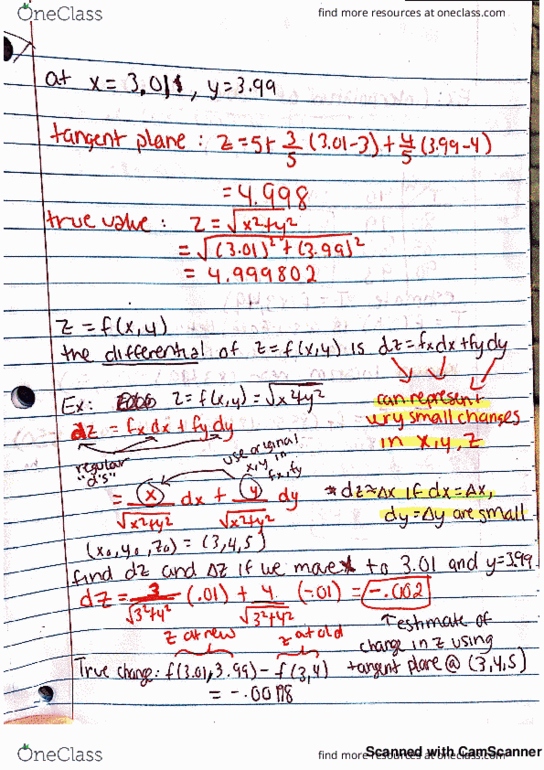 OneClass
find more resources at oneclass.com
at x = 3.01, y = 3.99
tangent plane : z = 5 + 3/5 (3.01-3) + 4/5 (3.99-4)
= 4.998
true value : z = √x²+y²
= √(3.01)²+(3.99)²
= 4.999802
z = f(x,y)
the differential of z = f(x,y) is dz = fxdx + fydy
Ex: z = f(x,y) = √x²+y²
can represent
very small changes
in x,y,z
dz = fxdx + fydy
regular "d's"
use original x,y in fx,fy
= x/√x²+y² dx + y/√x²+y² dy
* dz ≈ Δx if dx = Δx,
dy = Δy are small
(x₀,y₀,z₀) = (3,4,5)
find dz and ΔZ if we move x to 3.01 and y=3.99
dz = 3/√3²+4² (.01) + 4/√3²+4² (-.01) = -.002
z at new
z at old
↑ estimate of
change in z using
tangent plane @ (3,4,5)
True change: f(3.01,3.99) - f(3,4)
= -.00198
OneClass
find more resources at oneclass.com
Scanned with CamScanner